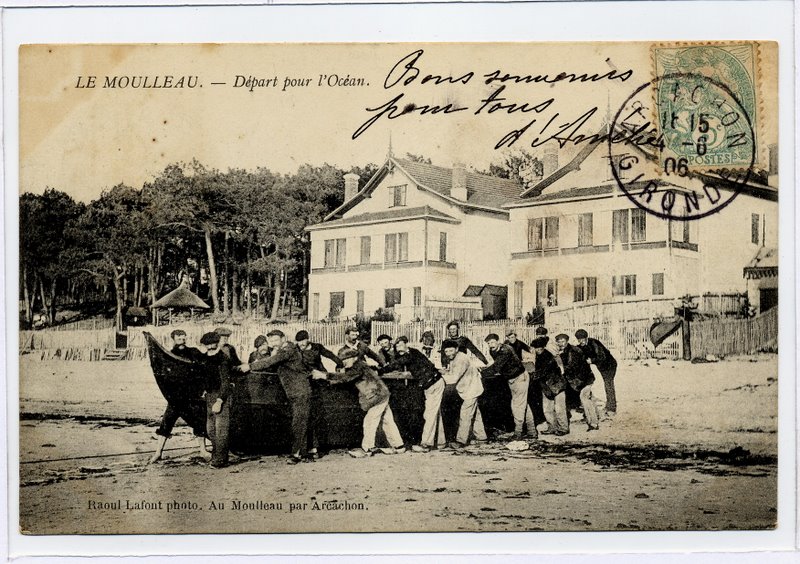 LE MOULLEAU. — Départ pour l'Océan.
Bons souvenirs
pour tous
d'Amélie
ARCACHON
11 15
-6
06
GIRONDE
5c
POSTES
Raoul Lafont photo. Au Moulleau par Arcachon.